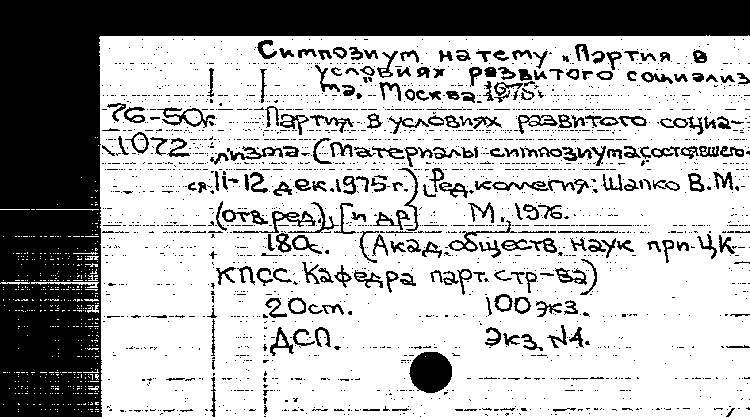 Симпозиум на тему „Партия в
условиях развитого социализ
ма." Москва. 1975.
76-50к Партия в условиях развитого социа-
1072 лизма. (Материалы симпозиума, состоявшего-
ся 11-12 дек. 1975 г.), [Ред. коллегия: Шапко В.М.
(отв. ред.), [и др] М., 1976.
180с. (Акад. обществ. наук при ЦК
КПСС. Кафедра парт. стр-ва)
20 см. 100 экз.
ДСП. Экз. №4.